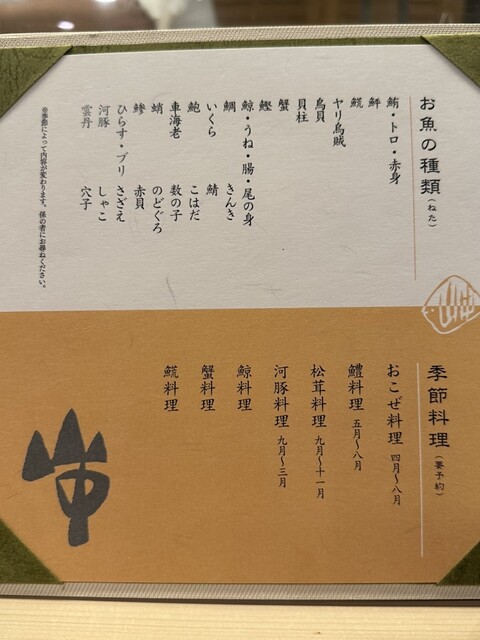 お魚の種類（ねた）
鮪・トロ・赤身
鮃
鯱
ヤリ烏賊
鳥貝
貝柱
蟹
鰹
鯨・うね・腸・尾の身
鯛 きんき
いくら 鯖
鮑 こはだ
車海老 数の子
蛸 のどぐろ
鯵 赤貝
ひらす・ブリ さざえ
河豚 しゃこ
雲丹 穴子
※季節によって内容が変わります。係の者にお尋ねください。
季節料理（要予約）
おこぜ料理 四月～八月
鱧料理 五月～八月
松茸料理 九月～十一月
河豚料理 九月～三月
鯨料理
蟹料理
鯱料理
山中